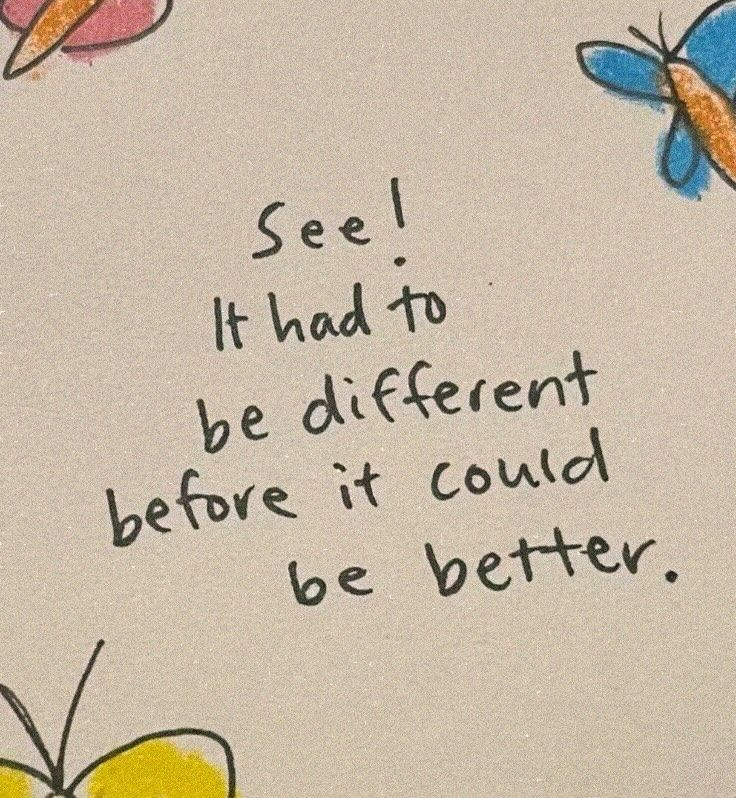 See!
It had to
be different
before it could
be better.